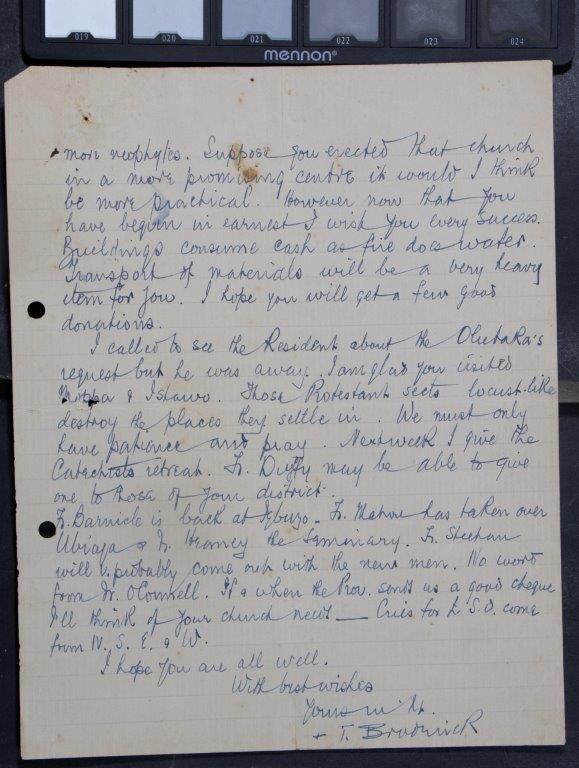 019 020 021 022 023 024
mennon®
more neophytes. Suppose you erected that church
in a more promising centre it would I think
be more practical. However now that you
have begun in earnest I wish you every success.
Buildings consume cash as fire does water.
Transport of materials will be a very heavy
item for you. I hope you will get a few good
donations.
I called to see the Resident about the
request but he was away. I am glad you visited
& Ishawo. Those Protestant sects locust-like
destroy the places they settle in. We must only
have patience and pray. Next week I give the
Catechists retreat. Fr. Duffy may be able to give
one to those of your district.
Fr. Barnicle is back at Igbuzo - Fr. has taken over
Ubiaja & Fr. Heaney the Seminary. Fr. Sheehan
will probably come out with the new men. No word
from Fr. O'Connell. If & when the Prov. sends us a good cheque
I'll think of your church needs — Cries for £ S.D. come
from N. S. E. & W.
I hope you are all well.
With best wishes
Yours in Xt.
+ T. Broderick